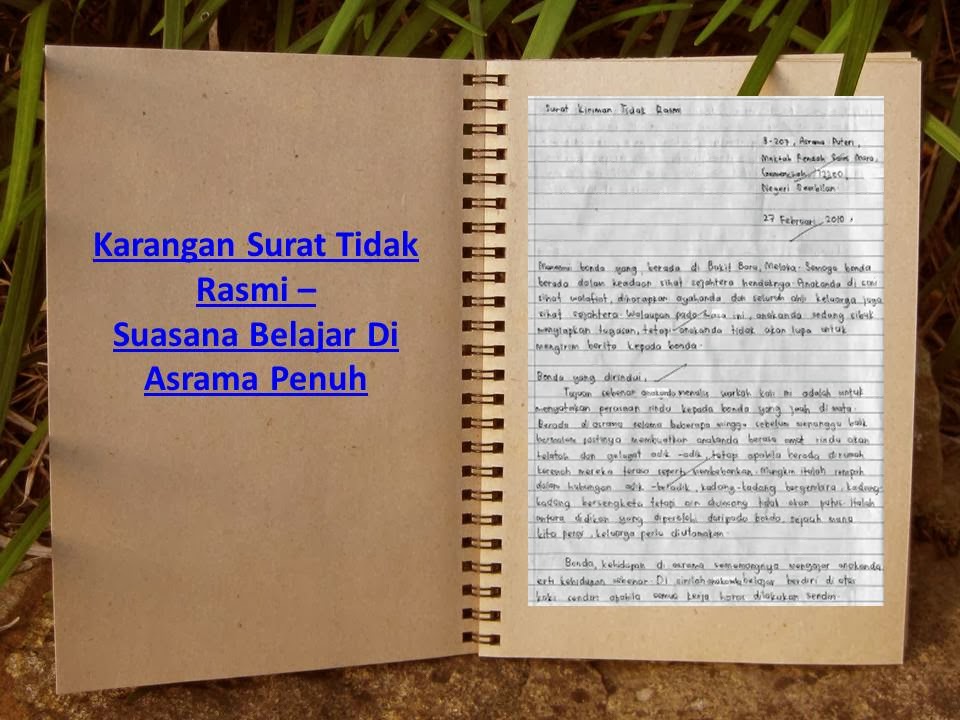 Karangan Surat Tidak
Rasmi –
Suasana Belajar Di
Asrama Penuh
Surat Kiriman Tidak Rasmi
B-207, Asrama Puteri,
Maktab Rendah Sains Mara,
72200,
Negeri Sembilan.
27 Februari 2010.
bonda yang berada di Bukit Baru, Melaka. Semoga bonda
berada dalam keadaan sihat sejahtera hendaknya. Anakanda di sini
sihat walafiat, diharapkan ayahanda dan seluruh ahli keluarga juga
sihat sejahtera. Walaupun pada masa ini, anakanda sedang sibuk
menyiapkan tugasan, tetapi anakanda tidak akan lupa untuk
mengirim berita kepada bonda.
Bonda yang dirindui,
Tujuan sebenar anakanda menulis warkah kali ini adalah untuk
menyatakan perasaan rindu kepada bonda yang jauh di mata.
Berada di asrama selama beberapa minggu sebelum menunggu balik
bermalam pastinya membuatkan anakanda berasa amat rindu akan
telatah dan gelagat adik-adik, tetapi apabila berada dirumah
kerenah mereka terasa seperti membebankan. Mungkin itulah rempah
dalam hubungan adik-beradik, kadang-kadang bergembira, kadang-
kadang bersengketa tetapi air dicincang tidak akan putus. Itulah
antara didikan yang diperolehi daripada bonda, sejauh mana
kita pergi, keluarga perlu diutamakan.
Bonda, kehidupan di asrama sememangnya mengajar anakanda
erti kehidupan sebenar. Di sinilah anakanda belajar berdiri di atas
kaki sendiri apabila semua kerja harus dilakukan sendiri.